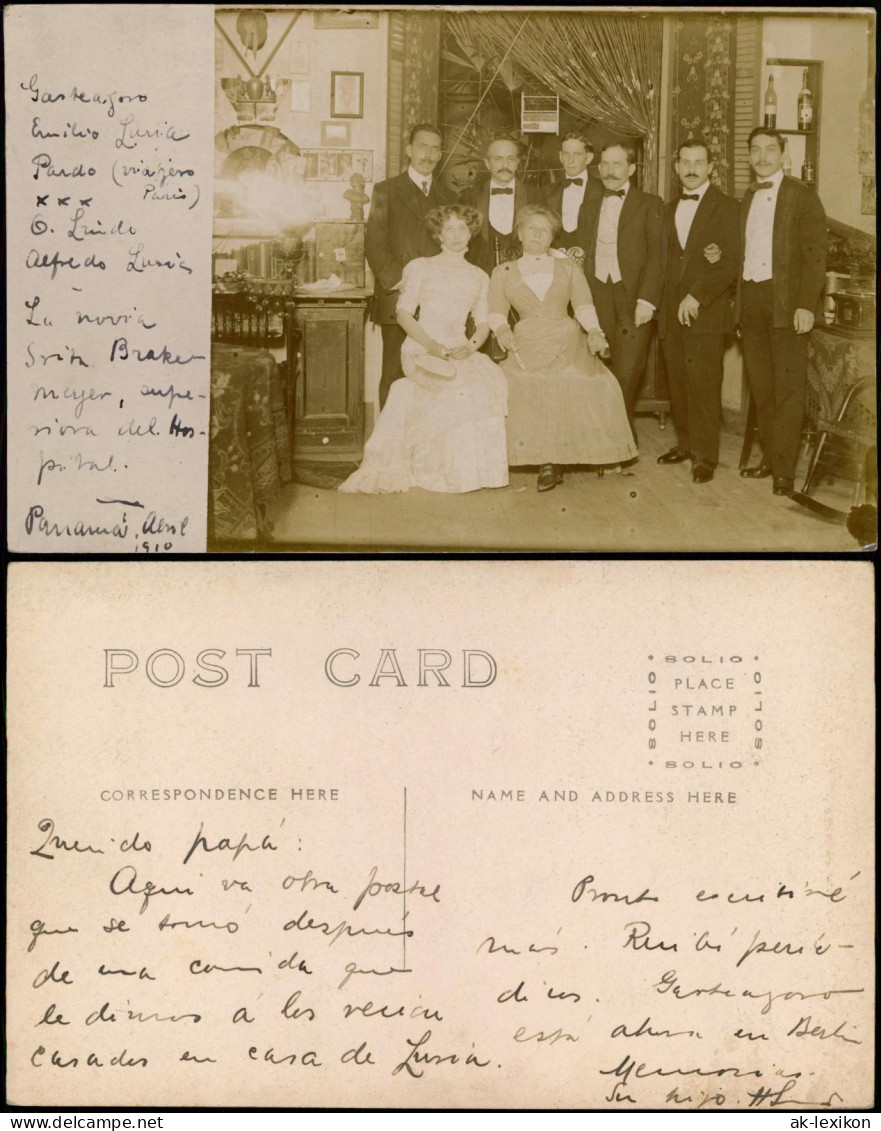 Gasteazoro
Emilio Luria
Pardo (viajero
xxx Paris)
O. Lindo
Alfredo Luria
La novia
Srita Brake-
meyer, supe-
riora del Hos-
pital.
Panamá, Abril
1910
POST CARD
SOLIO
SOLIO PLACE SOLIO
STAMP
HERE
SOLIO
CORRESPONDENCE HERE
NAME AND ADDRESS HERE
Querido papá:
Aqui va otra postal
que se tomó después
de una comida que
le dimos á los recien
casados en casa de Luria.
Pronto escribiré
más. Recibí perió-
dicos. Gasteazoro
está ahora en Berlin
Memorias.
Su hijo.
ak-lexikon
ak-lexikon.com